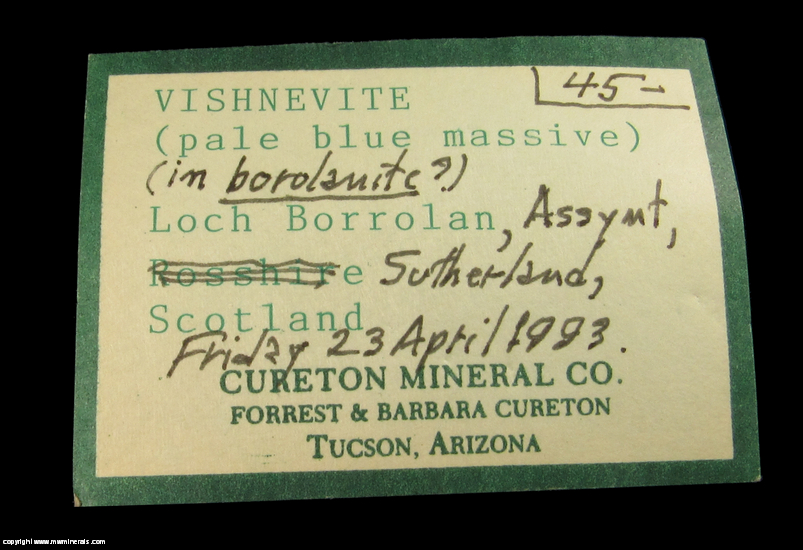 VISHNEVITE
45-
(pale blue massive)
(in borolanite?)
Loch Borrolan, Assynt,
Rosshire Sutherland,
Scotland
Friday 23 April 1993.
CURETON MINERAL CO.
FORREST & BARBARA CURETON
TUCSON, ARIZONA
copyright www.mwminerals.com